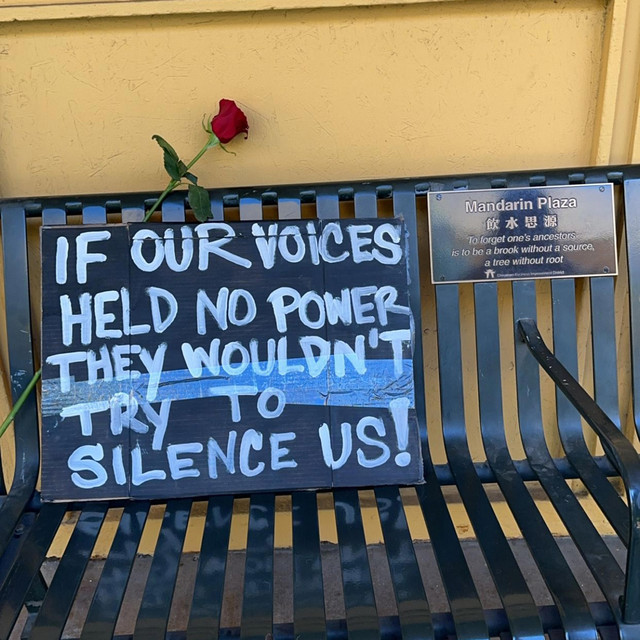 IF OUR VOICES
HELD NO POWER
THEY WOULDN'T
TRY TO
SILENCE US!
Mandarin Plaza
飲水思源
To forget one's ancestors
is to be a brook without a source,
a tree without root